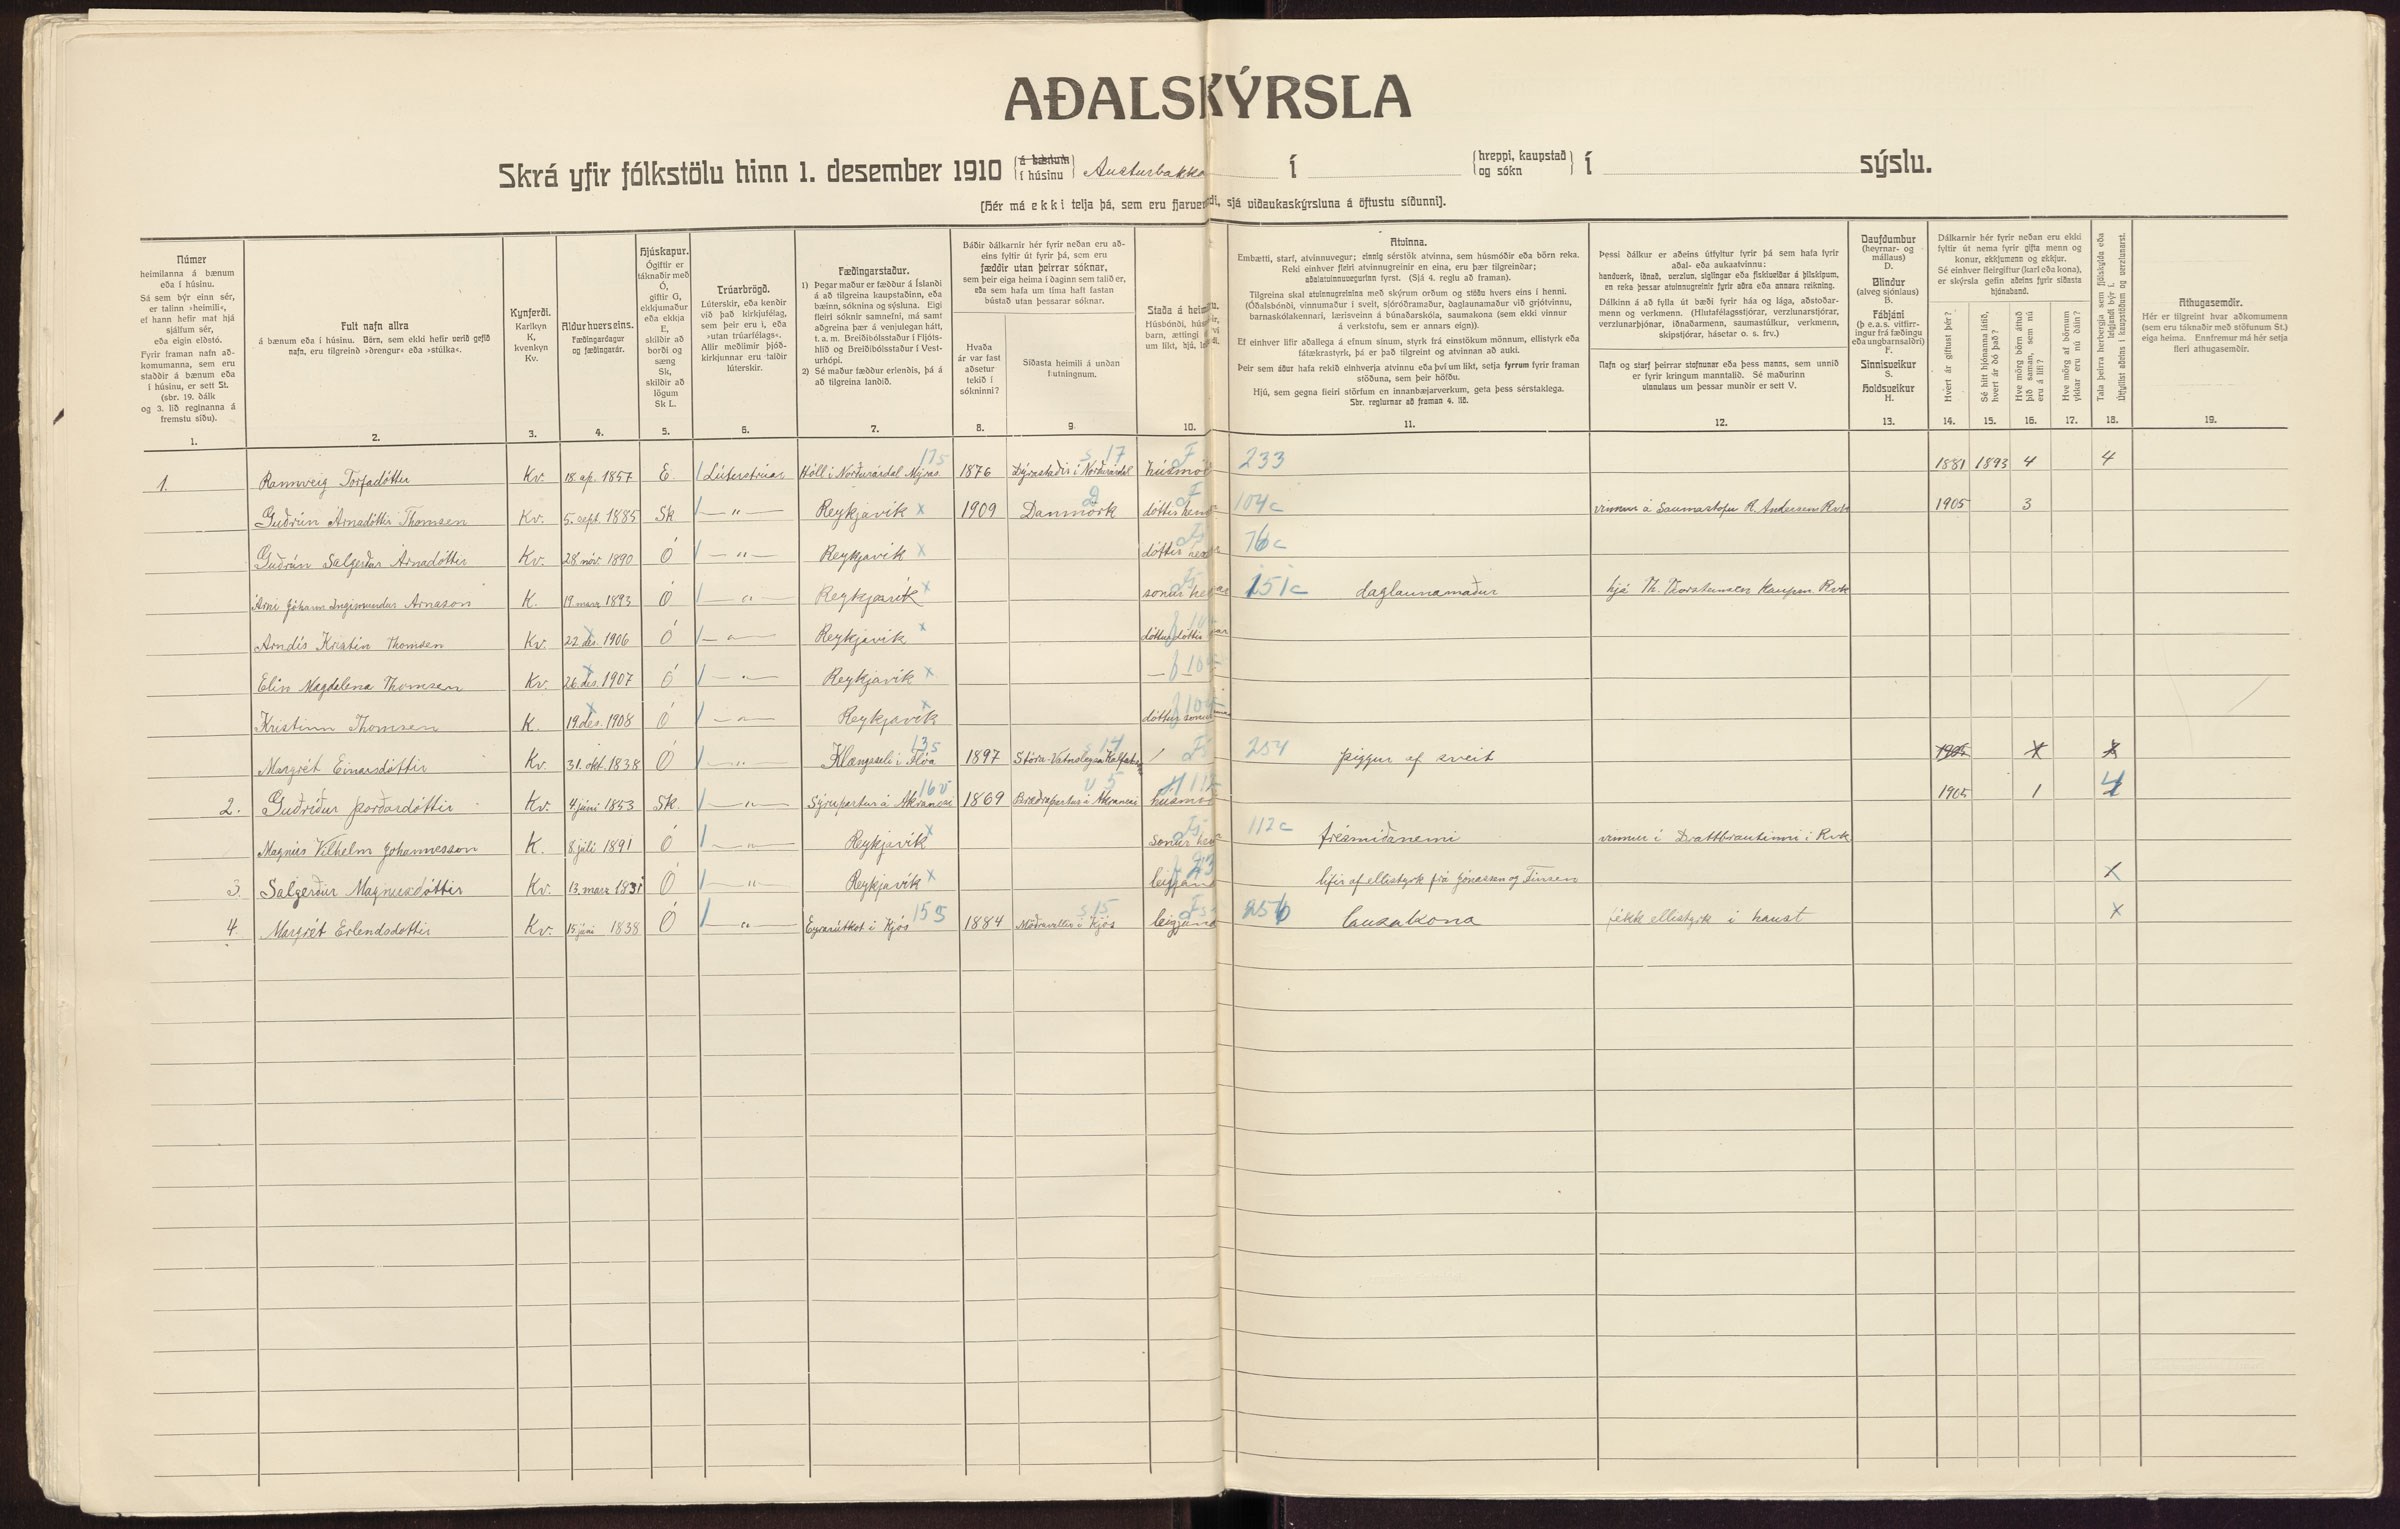 AÐALSKÝRSLA
Skrá yfir fólkstölu hinn 1. desember 1910 á bænum í húsinu Austurbakka í hreppi, kaupstað og sókn í sýslu.
(Hér má ekki telja þá, sem eru fjarverandi, sjá viðaukaskýrsluna á öftustu síðunni).
Númer heimilanna á bænum eða í húsinu. Sá sem býr einn sér, er talinn »heimili«, ef hann hefir mat hjá sjálfum sér, og eigin eldstó. Fyrir framan nafn aðkomumanna, sem eru staddir á bænum eða í húsinu, er sett St. (sbr. 19. dálk og 3. lið reglnanna á fremstu síðu).
Fult nafn allra á bænum eða í húsinu. Börn, sem ekki hefir verið gefið nafn, eru tilgreind »drengur« eða »stúlka«.
Kynferði. Karlkyn K, kvenkyn Kv.
Aldur hvers eins. Fæðingardagur og fæðingarár.
Hjúskapur. Ógiftir er táknaðir með Ó, giftir G, ekkjumaður eða ekkja E, skildir að borði og sæng Sk, skildir að lögum Sk L.
Trúarbrögð. Lúterskir, eða kendir við það kirkjufélag, sem þeir eru í, eða »utan trúarfélags«. Allir meðlimir þjóðkirkjunnar eru taldir lúterskir.
Fæðingarstaður. 1) Þegar maður er fæddur á Íslandi á að tilgreina kaupstaðinn, eða bæinn, sóknina og sýsluna. Eigi fleiri sóknir samnefni, má samt aðgreina þær á venjulegan hátt, t. a. m. Breiðibólsstaður í Fljótshlíð og Breiðibólsstaður í Vesturhópi. 2) Sé maður fæddur erlendis, þá á að tilgreina landið.
Báðir dálkarnir hér fyrir neðan eru aðeins fyltir út fyrir þá, sem eru fæddir utan þeirrar sóknar, sem þeir eiga heima í daginn sem talið er, eða sem hafa um tíma haft fastan bústað utan þessarar sóknar.
Hvaða ár var fast aðsetur tekið í sókninni?
Síðasta heimili á undan flutningnum.
Staða á heim
Atvinna.
Embætti, starf, atvinnuvegur; einnig sérstök atvinna, sem húsmóðir eða börn reka. Reki einhver fleiri atvinnugreinir en eina, eru þær tilgreindar; aðalatvinnuvegurinn fyrst. (Sjá 4. reglu að framan).
Tilgreina skal atvinnugreinina með skýrum orðum og stöðu hvers eins í henni. (Óðalsbóndi, vinnumaður í sveit, sjóróðramaður, daglaunamaður við grjótvinnu, barnaskólakennari, lærisveinn á búnaðarskóla, saumakona (sem ekki vinnur á verkstofu, sem er annars eign)).
Ef einhver lifir aðallega á efnum sínum, styrk frá einstökum mönnum, ellistyrk eða fátækrastyrk, þá er það tilgreint og atvinnan að auki.
Þeir sem áður hafa rekið einhverja atvinnu eða því um líkt, setja fyrrum fyrir framan stöðuna, sem þeir höfðu.
Hjú, sem gegna fleiri störfum en innanbæjarverkum, geta þess sérstaklega. Sbr. reglurnar að framan 4. lið.
Þessi dálkur er aðeins útfyltur fyrir þá sem hafa fyrir aðal- eða aukaatvinnu: handverk, iðnað, verzlun, siglingar eða fiskiveiðar á þilskipum, en reka þessar atvinnugreinir fyrir aðra eða annara reikning.
Dálkinn á að fylla út bæði fyrir háa og lága, aðstoðarmenn og verkmenn. (Hlutafélagsstjórar, verzlunarstjórar, verzlunarþjónar, iðnaðarmenn, saumastúlkur, verkmenn, skipstjórar, hásetar o. s. frv.)
Nafn og starf þeirrar stofnunar eða þess manns, sem unnið er fyrir kringum manntalið. Sé maðurinn vinnulaus um þessar mundir er sett V.
Daufdumbur (heyrnar- og mállaus) D. Blindur (alveg sjónlaus) B. Fábjáni (þ. e. a. s. vitfirringur frá fæðingu eða ungbarnsaldri) F. Sinnisveikur S. Holdsveikur H.
Dálkarnir hér fyrir neðan eru ekki fyltir út nema fyrir gifta menn og konur, ekkjumenn og ekkjur. Sé einhver fleirgiftur (karl eða kona), er skýrsla gefin aðeins fyrir síðasta hjónaband.
Hvert ár giftust þér?
Sé hitt hjónanna látið, hvert ár dó það?
Hve mörg börn áttuð þið saman, sem nú eru á lífi?
Hve mörg af börnum ykkar eru nú dáin?
Tala þeirra herbergja sem fjölskylda eða leigjandi býr í. Útfyllist aðeins í kaupstöðum og verzlunarst.
Athugasemdir. Hér er tilgreint hvar aðkomumenn (sem eru táknaðir með stöfunum St.) eiga heima. Ennfremur má hér setja fleri athugasemdir.
1. 2. 3. 4. 5. 6. 7. 8. 9. 10. 11. 12. 13. 14. 15. 16. 17. 18. 19.
1. Rannveig Torfadóttir Kv. 18. ap. 1857 E. Lúterstrúar Hóll í Norðurárdal Mýras 175 1876 Dýrastaðir í Norðurárdal s 17 húsmóð F 233 1881 1893 4 4
Guðrún Árnadóttir Thomsen Kv. 5. sept. 1885 Sk — „ — Reykjavík x 1909 Danmörk dóttir henn 104c vinnur á Saumastofu R. Andersen Rvk 1905 3
Guðrún Salgerður Árnadóttir Kv. 28. nóv. 1890 Ó — „ — Reykjavík x dóttir hen 76c
Árni Jóhann Ingimundur Árnason K. 19. marz 1893 Ó — „ — Reykjavík x sonur hennar 151c daglaunamaður hjá Th. Thorsteinsen kaupm. Rvk
Arndís Kristín Thomsen Kv. 22. des. 1906 Ó — „ — Reykjavík x dóttur dóttir
Elín Magdalena Thomsen Kv. 26. des. 1907 Ó — „ — Reykjavík x
Kristinn Thomsen K. 19. des. 1908 Ó — „ — Reykjavík x dóttur sonur
Margrét Einarsdóttir Kv. 31. okt. 1838 Ó — „ — Klængsseli í Flóa 135 1897 Stóra-Vatnsleysa s 14 254 þiggur af sveit 1905
2. Guðríður Þorðardóttir Kv. 4. júní 1853 Sk. — „ — Sýrupartur á Akranesi 16v 1869 Bræðrapartur á Akranesi v 5 húsmóð 1905 1 4
Magnús Vilhelm Jóhannesson K. 8. júlí 1891 Ó — „ — Reykjavík x Sonur hen 112c trésmíðanemi vinnur í Drattbrautinni í Rvk
3. Salgerður Magnusdóttir Kv. 13. marz 1831 Ó — „ — Reykjavík x leigjand lifir af ellistyrk frá Jónassen og Finsen x
4. Margrét Erlendsdóttir Kv. 15. júní 1838 Ó — „ — Eyrarútkot í Kjós 155 1884 Möðruvellir í Kjós s 15 leigjand 256 lausakona fékk ellistyrk í haust x